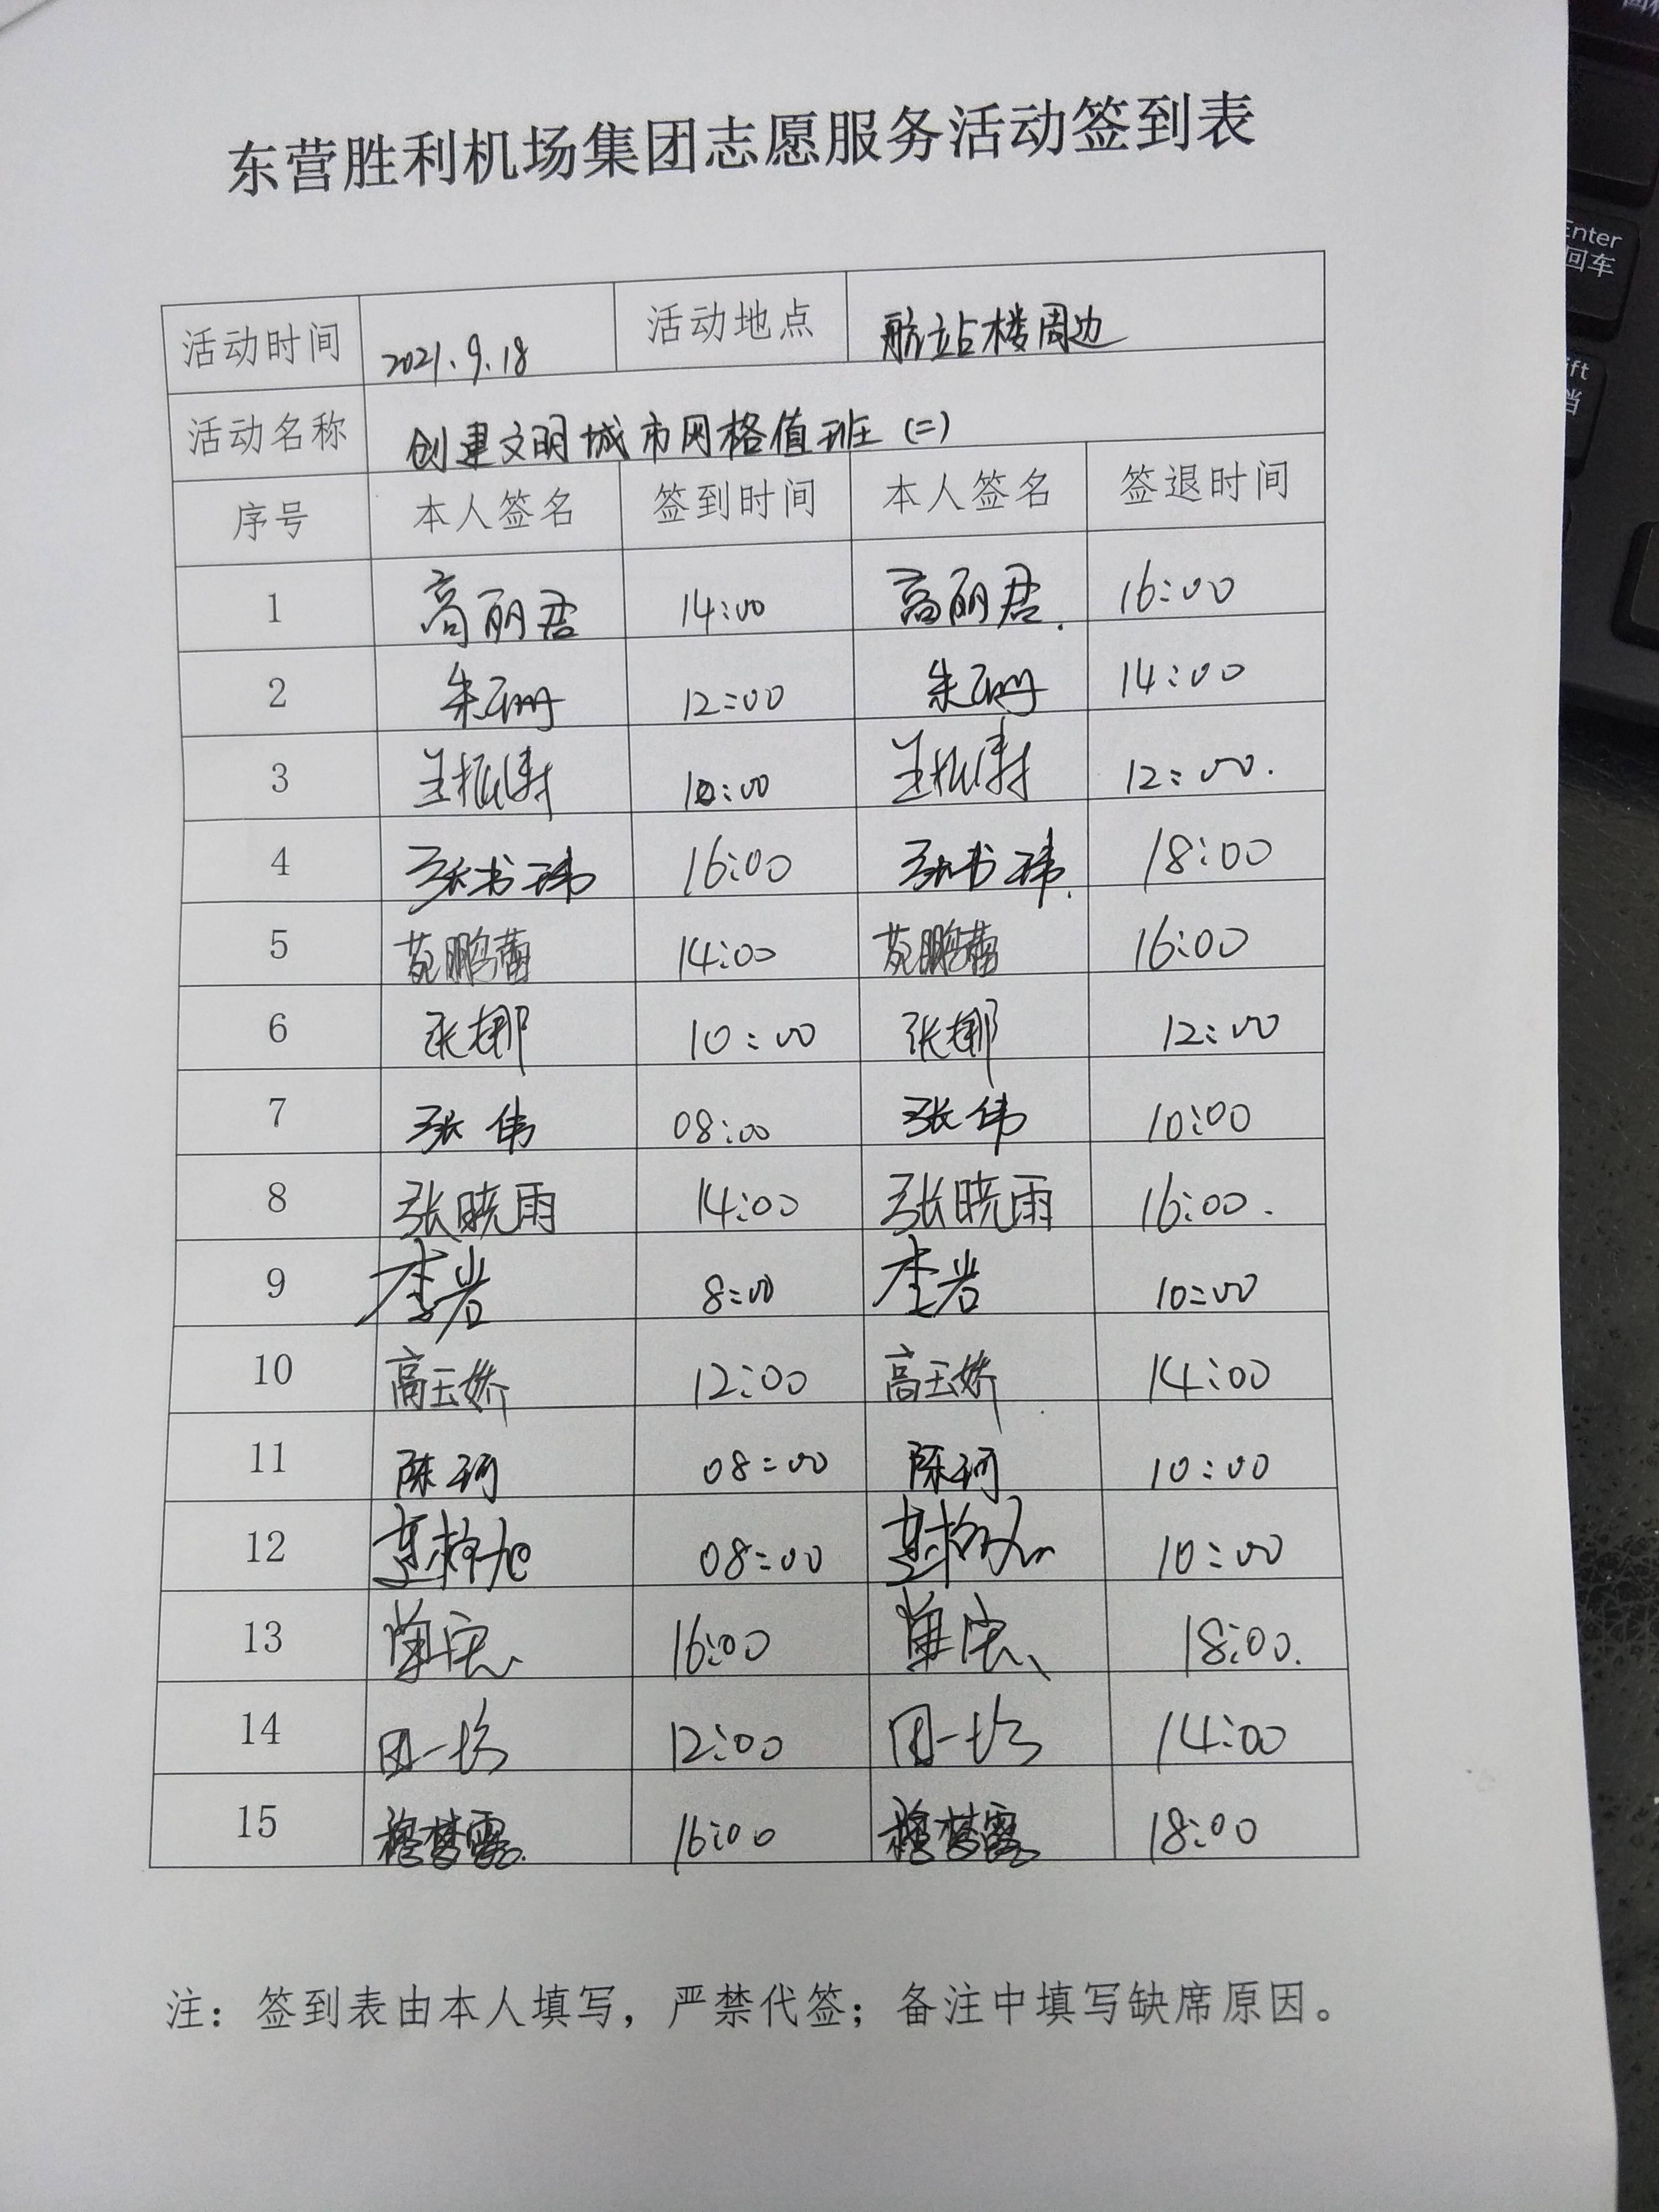 东营胜利机场集团志愿服务活动签到表
活动时间 2021.9.18 活动地点 航站楼周边
活动名称 创建文明城市网格值班(二)
序号 本人签名 签到时间 本人签名 签退时间
1 高丽君 14:00 高丽君. 16:00
2 朱珊 12:00 朱珊 14:00
3 10:00 12:00.
4 张书玮 16:00 张书玮. 18:00
5 苑鹏蕾 14:00 苑鹏蕾 16:00
6 张娜 10:00 张娜 12:00
7 张伟 08:00 张伟 10:00
8 张晓雨 14:00 张晓雨 16:00.
9 李岩 8:00 李岩 10:00
10 高玉娇 12:00 高玉娇 14:00
11 陈珂 08:00 陈珂 10:00
12 08:00 10:00
13 16:00 18:00.
14 12:00 14:00
15 程梦露. 16:00 程梦露 18:00
注：签到表由本人填写，严禁代签；备注中填写缺席原因。
Enter
回车